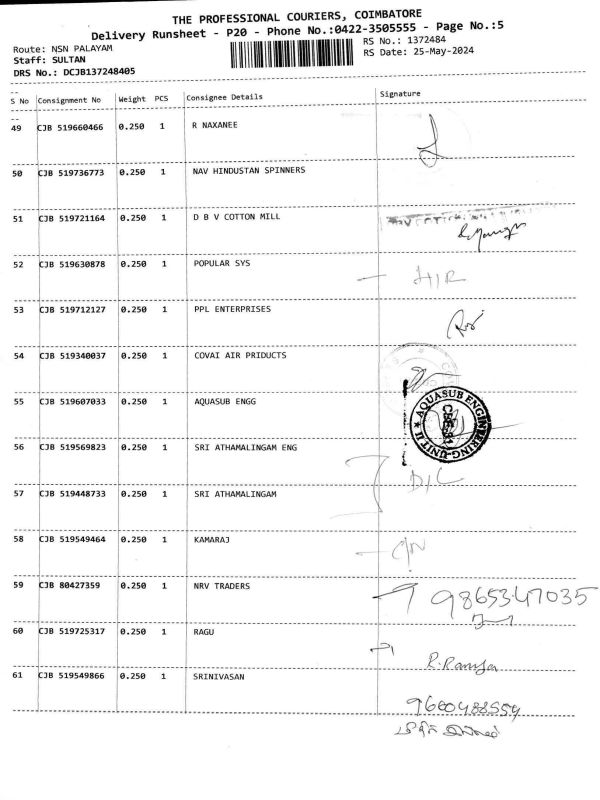 THE PROFESSIONAL COURIERS, COIMBATORE
Delivery Runsheet - P20 - Phone No.:0422-3505555 - Page No.:5
Route: NSN PALAYAM
RS No.: 1372484
Staff: SULTAN
RS Date: 25-May-2024
DRS No.: DCJB137248405
S No Consignment No Weight PCS Consignee Details Signature
49 CJB 519660466 0.250 1 R NAXANEE
50 CJB 519736773 0.250 1 NAV HINDUSTAN SPINNERS
51 CJB 519721164 0.250 1 D B V COTTON MILL
52 CJB 519630878 0.250 1 POPULAR SYS
53 CJB 519712127 0.250 1 PPL ENTERPRISES
54 CJB 519340037 0.250 1 COVAI AIR PRIDUCTS
55 CJB 519607033 0.250 1 AQUASUB ENGG
AQUASUB ENGINEERING-UNIT II
56 CJB 519569823 0.250 1 SRI ATHAMALINGAM ENG
D/C
57 CJB 519448733 0.250 1 SRI ATHAMALINGAM
58 CJB 519549464 0.250 1 KAMARAJ
59 CJB 80427359 0.250 1 NRV TRADERS
9865347035
60 CJB 519725317 0.250 1 RAGU
R. Ramya
61 CJB 519549866 0.250 1 SRINIVASAN